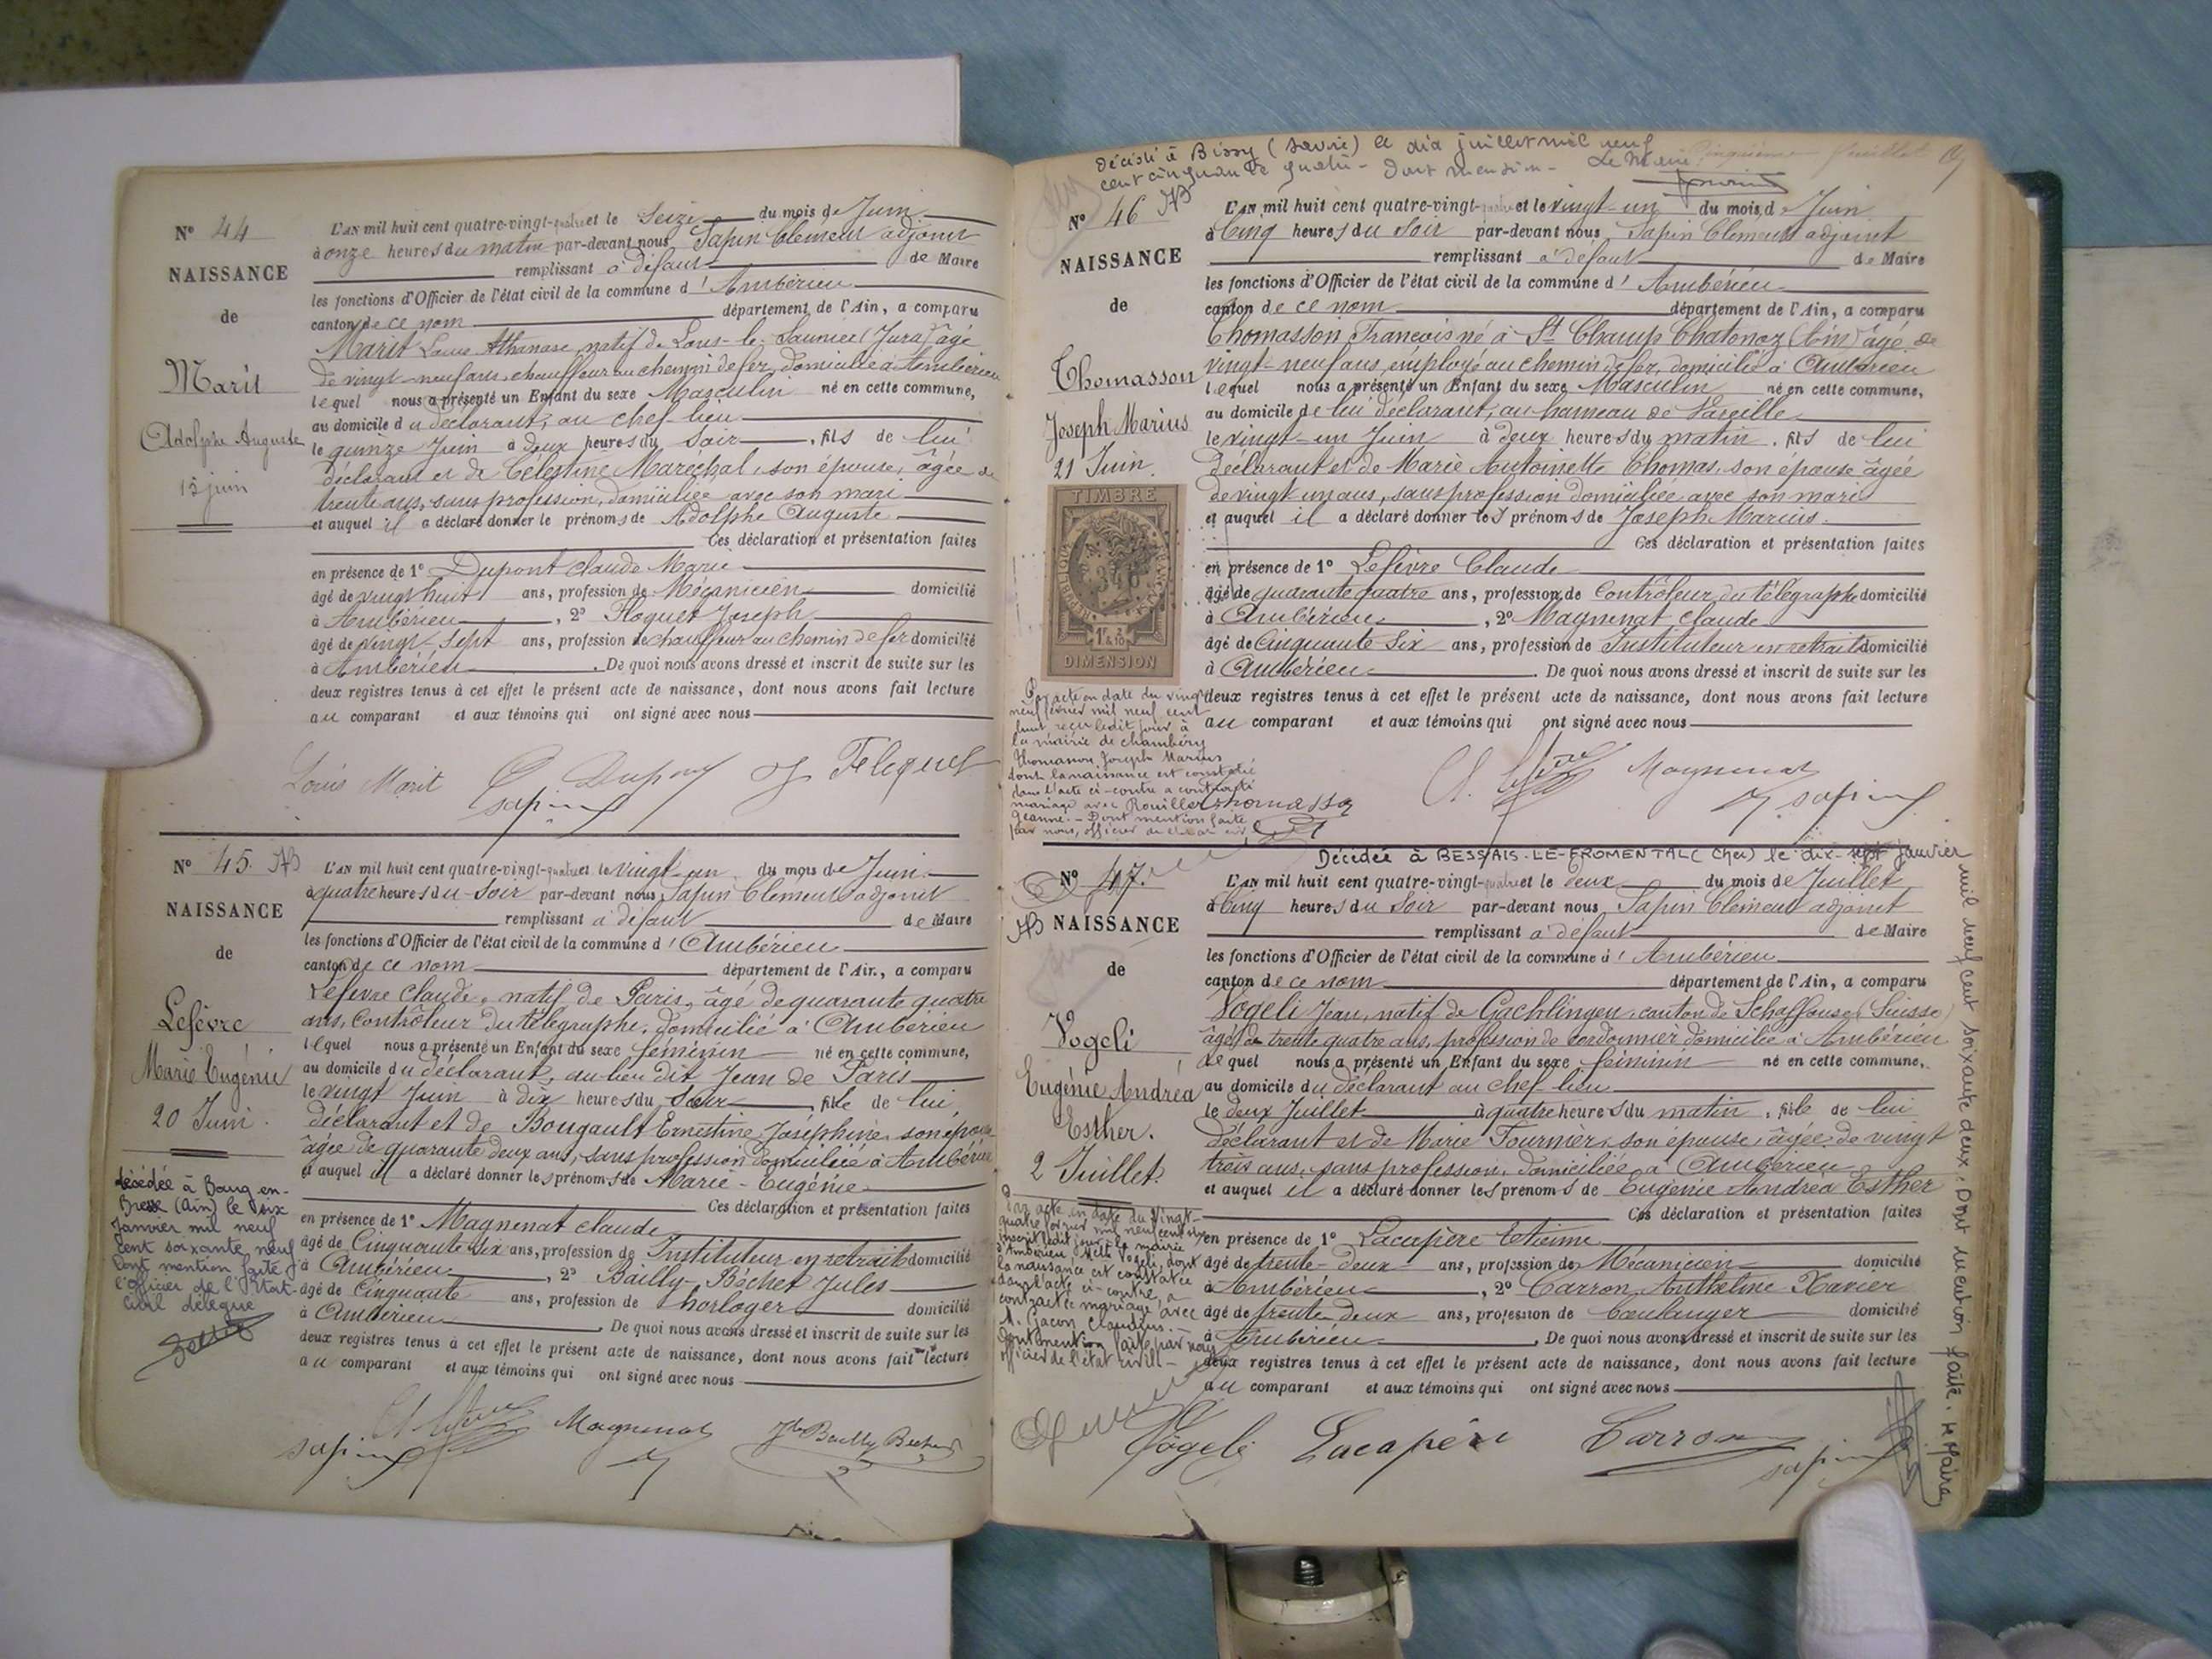 N° 44
NAISSANCE
de
Marit
Adolphe Auguste
15 juin
L'AN mil huit cent quatre-vingt-quatre et le Seize du mois de Juin
à onze heures du matin par-devant nous Sapin Clément adjoint
remplissant à défaut de Maire
les fonctions d'Officier de l'état civil de la commune d'Ambérieu
canton de ce nom département de l'Ain, a comparu
Marit Louis Athanase, natif de Lons-le-Saunier (Jura) âgé
de vingt-neuf ans, chauffeur au chemin de fer, domicilié à Ambérieu
lequel nous a présenté un Enfant du sexe Masculin né en cette commune,
au domicile du déclarant, au chef-lieu
le quinze Juin à deux heures du soir, fils de lui
déclarant et de Célestine Maréchal, son épouse, âgée de
trente ans, sans profession, domiciliée avec son mari
et auquel il a déclaré donner le prénoms de Adolphe Auguste
Ces déclaration et présentation faites
en présence de 1° Dupont Claude Marie
âgé de vingt huit ans, profession de Mécanicien domicilié
à Ambérieu, 2° Floquet Joseph
âgé de vingt-sept ans, profession de chauffeur au chemin de fer domicilié
à Ambérieu. De quoi nous avons dressé et inscrit de suite sur les
deux registres tenus à cet effet le présent acte de naissance, dont nous avons fait lecture
au comparant et aux témoins qui ont signé avec nous
Louis Marit Dupont J Floquet
Sapin
N° 45
NAISSANCE
de
Lefèvre
Marie Eugénie
20 Juin.
décédée à Bourg-en-
Bresse (Ain) le six
Janvier mil neuf
cent soixante neuf
Dont mention faite
l'officier de l'Etat-
Civil délégué
L'AN mil huit cent quatre-vingt-quatre et le vingt-un du mois de Juin
à quatre heures du soir par-devant nous Sapin Clément adjoint
remplissant à défaut de Maire
les fonctions d'Officier de l'état civil de la commune d'Ambérieu
canton de ce nom département de l'Ain, a comparu
Lefèvre Claude, natif de Paris, âgé de quarante quatre
ans, Contrôleur du télégraphe, domicilié à Ambérieu
lequel nous a présenté un Enfant du sexe féminin né en cette commune,
au domicile du déclarant, au lieu dit Jean de Paris
le vingt Juin à dix heures du soir, fille de lui
déclarant et de Bougault Ernestine Joséphine, son épouse
âgée de quarante deux ans, sans profession domiciliée à Ambérieu
et auquel il a déclaré donner les prénoms de Marie-Eugénie
Ces déclaration et présentation faites
en présence de 1° Magnenat Claude
âgé de Cinquante Six ans, profession de Instituteur en retraite domicilié
à Ambérieu, 2° Bailly-Béchet Jules
âgé de Cinquante ans, profession de horloger domicilié
à Ambérieu. De quoi nous avons dressé et inscrit de suite sur les
deux registres tenus à cet effet le présent acte de naissance, dont nous avons fait lecture
au comparant et aux témoins qui ont signé avec nous
Magnenat Jles Bailly Bechet
Sapin
Décédé à Bissy (Savoie) le dix juillet mil neuf
cent cinquante quatre - Dont mention - Le Maire
N° 46
NAISSANCE
de
Thomasson
Joseph Marius
21 Juin.
TIMBRE
REPUBLIQUE FRANÇAISE
DIMENSION
Par acte en date du vingt
neuf février mil neuf cent
huit, reçu ledit jour à
la mairie de Chambéry
Thomasson Joseph Marius
dont la naissance est constatée
dans l'acte ci-contre a contracté
mariage avec Rouiller
Jeanne. - Dont mention faite
par nous, officier de l'état civil
L'AN mil huit cent quatre-vingt-quatre et le vingt-un du mois de Juin
à Cinq heures du Soir par-devant nous Sapin Clément adjoint
remplissant à défaut de Maire
les fonctions d'Officier de l'état civil de la commune d'Ambérieu
canton de ce nom département de l'Ain, a comparu
Thomasson François né à St Champ Chatonoz (Ain) âgé de
vingt-neuf ans, employé au chemin de fer, domicilié à Ambérieu
lequel nous a présenté un Enfant du sexe Masculin né en cette commune,
au domicile de lui déclarant, au hameau de Vareille
le vingt-un Juin à deux heures du matin, fils de lui
déclarant et de Marie Antoinette Thomas, son épouse âgée
de vingt-un ans, sans profession domiciliée avec son mari
et auquel il a déclaré donner les prénoms de Joseph Marius.
Ces déclaration et présentation faites
en présence de 1° Lefèvre Claude
âgé de quarante quatre ans, profession de Contrôleur du télégraphe domicilié
à Ambérieu, 2° Magnenat Claude
âgé de Cinquante Six ans, profession de Instituteur en retraite domicilié
à Ambérieu. De quoi nous avons dressé et inscrit de suite sur les
deux registres tenus à cet effet le présent acte de naissance, dont nous avons fait lecture
au comparant et aux témoins qui ont signé avec nous
Magnenat
Thomasson Sapin
Décédée à BESSAIS-LE-FROMENTAL (Cher) le dix-sept janvier
mil neuf cent soixante deux. Dont mention faite. Le Maire
N° 47.
NAISSANCE
de
Vogeli
Eugénie Andréa
Esther.
2 Juillet.
Par acte en date du vingt-
quatre février mil neuf cent six
inscrit ledit jour à la mairie
d'Ambérieu Melle Vogeli, dont
la naissance est constatée
dans l'acte ci-contre, a
contracté mariage avec
M. Jacon Claudius.
Dont mention faite par nous
officier de l'état civil -
L'AN mil huit cent quatre-vingt-quatre et le deux du mois de Juillet
à Cinq heures du Soir par-devant nous Sapin Clément adjoint
remplissant à défaut de Maire
les fonctions d'Officier de l'état civil de la commune d'Ambérieu
canton de ce nom département de l'Ain, a comparu
Vogeli Jean, natif de Gachlingen, canton de Schaffouse (Suisse)
âgé de trente quatre ans, profession de cordonnier domicilié à Ambérieu
lequel nous a présenté un Enfant du sexe féminin né en cette commune,
au domicile du déclarant au chef lieu
le deux Juillet à quatre heures du matin, fille de lui
déclarant et de Marie Fournier, son épouse, âgée de vingt
trois ans, sans profession, domiciliée à Ambérieu
et auquel il a déclaré donner les prénoms de Eugénie Andréa Esther
Ces déclaration et présentation faites
en présence de 1° Lacapère Etienne
âgé de trente-deux ans, profession de Mécanicien domicilié
à Ambérieu, 2° Carron Anthelme Xavier
âgé de trente-deux ans, profession de boulanger domicilié
à Ambérieu. De quoi nous avons dressé et inscrit de suite sur les
deux registres tenus à cet effet le présent acte de naissance, dont nous avons fait lecture
au comparant et aux témoins qui ont signé avec nous
Vögeli Lacapère Carron Sapin